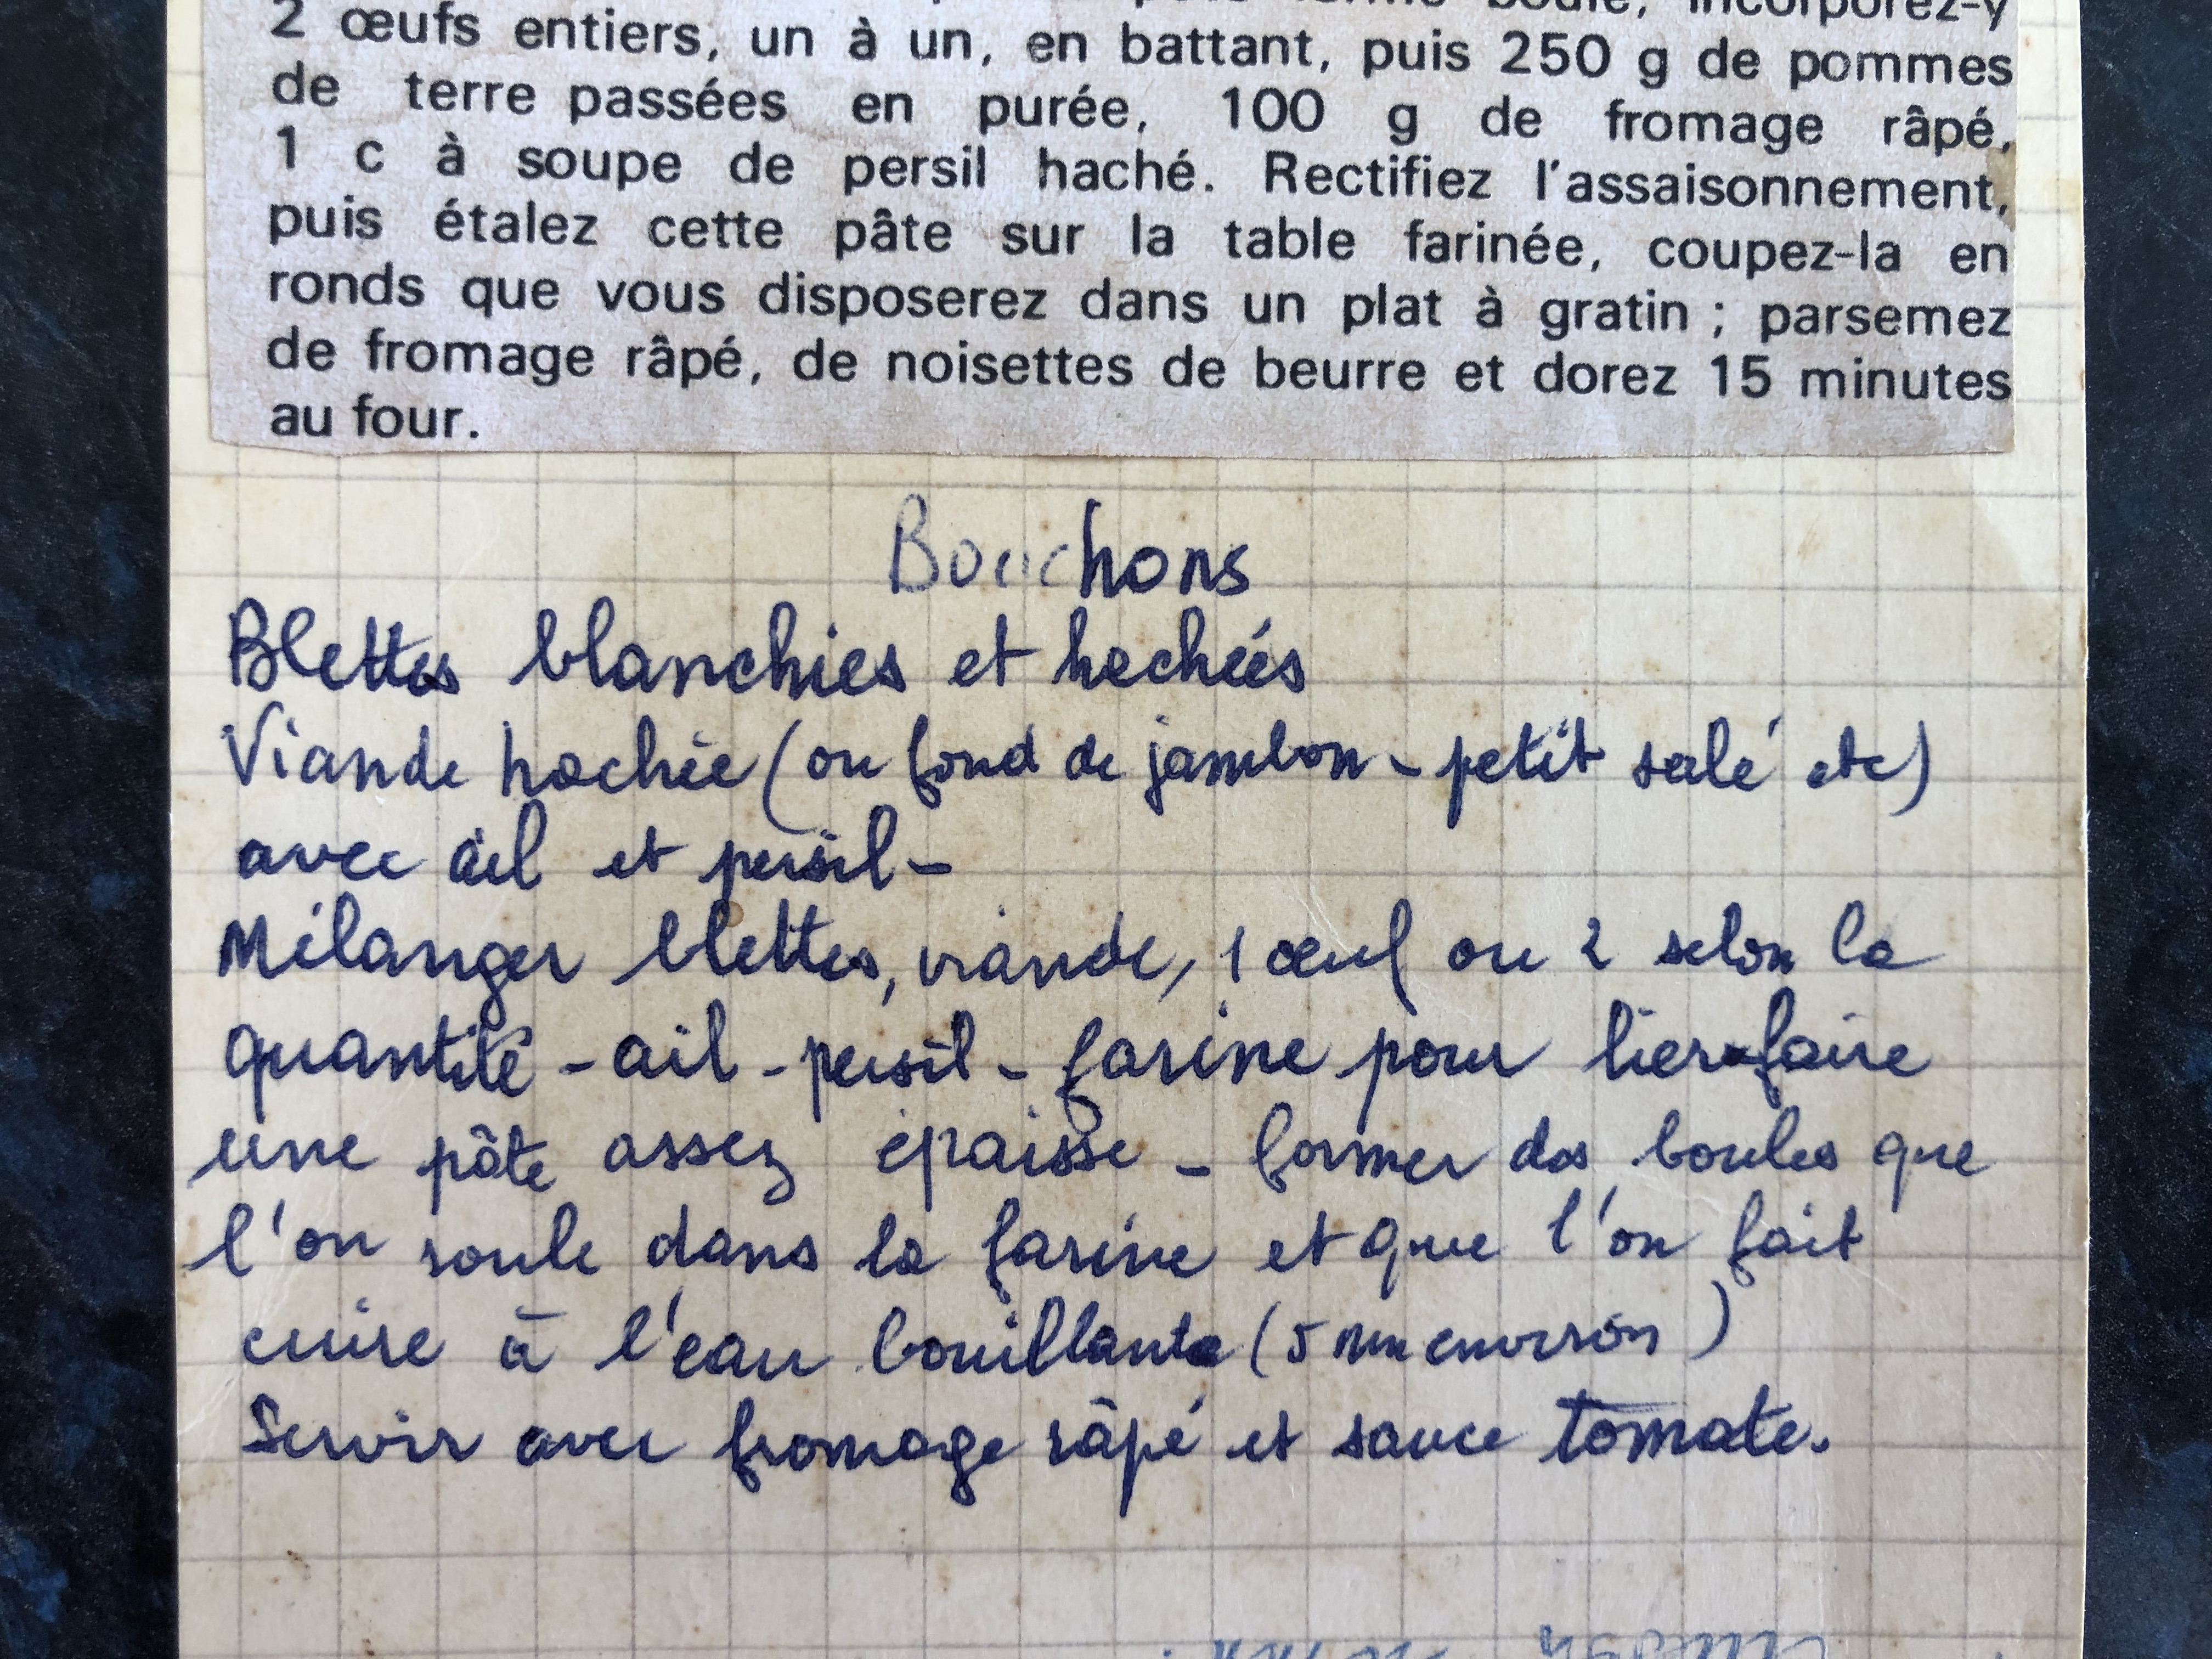 2 œufs entiers, un à un, en battant, puis 250 g de pommes
de terre passées en purée, 100 g de fromage râpé,
1 c à soupe de persil haché. Rectifiez l'assaisonnement,
puis étalez cette pâte sur la table farinée, coupez-la en
ronds que vous disposerez dans un plat à gratin ; parsemez
de fromage râpé, de noisettes de beurre et dorez 15 minutes
au four.
Bouchons
Blettes blanchies et hachées
Viande hachée (ou fond de jambon - petit salé etc)
avec ail et persil -
Mélanger blettes, viande, 1 œuf ou 2 selon la
quantité - ail - persil - farine pour lier - faire
une pâte assez épaisse - former des boules que
l'on roule dans la farine et que l'on fait
cuire à l'eau bouillante (5 mn environ)
Servir avec fromage râpé et sauce tomate.